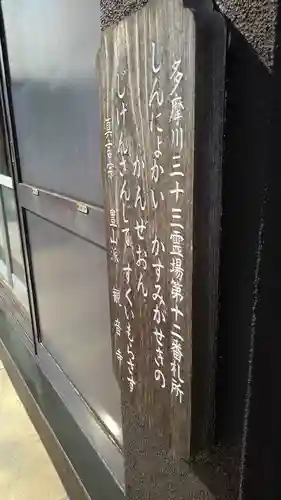 多摩川三十三霊場第十二番札所
しんによかい かすみがせきの
がんぜおん
じげんさんしゆ すくいもらさず
真言宗 豊山派 観音寺